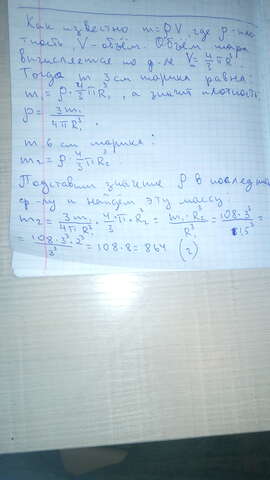 Как известно m=ρV, где ρ - пло-
тность, V - объём. Объём шара
вычисляется по ф-ле V = 4/3 πR³
Тогда m 3 см шарика равна:
m₁ = ρ·4/3 πR₁³, а значит плотность,
ρ = 3m₁/4πR₁³.
m 6 см шарика:
m₂ = ρ·4/3 πR₂³
Подставим значение ρ в последнюю
ф-лу и найдём эту массу:
m₂ = 3m₁/4πR₁³ · 4/3·π·R₂³ = m₁·R₂³/R₁³ = 108·3³/1,5³ =
= 108·3³·2³/3³ = 108·8 = 864 (г)